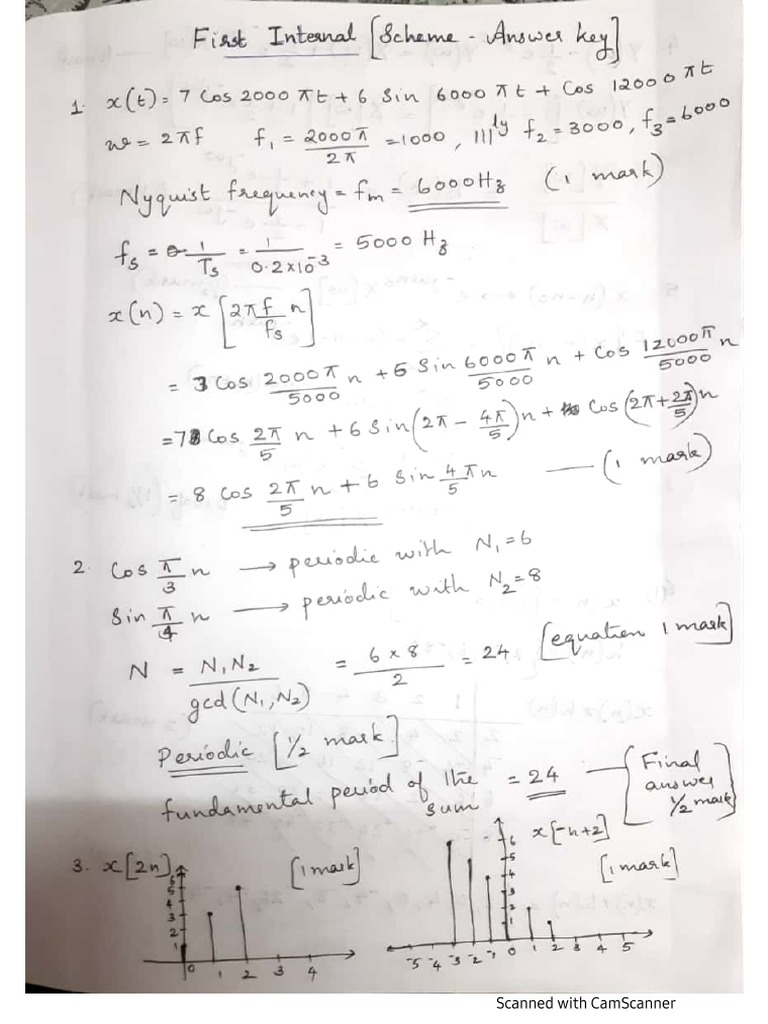 First Internal [Scheme - Answer key]
1. x(t) = 7 Cos 2000 πt + 6 Sin 6000 πt + Cos 12000 πt
w = 2πf f₁ = 2000π/2π = 1000, |||ly f₂ = 3000, f₃ = 6000
Nyquist frequency = fm = 6000Hz (1 mark)
fs = 1/Ts = 1/0.2×10⁻³ = 5000 Hz
x(n) = x[2πf/fs n]
= 3 Cos 2000π/5000 n + 6 Sin 6000π/5000 n + Cos 12000π/5000 n
= 7 Cos 2π/5 n + 6 Sin(2π - 4π/5)n + Cos(2π + 2π/5)n
= 8 Cos 2π/5 n + 6 Sin 4/5 πn — (1 mark)
2. Cos π/3 n → periodic with N₁ = 6
Sin π/4 n → periodic with N₂ = 8
N = N₁N₂/gcd(N₁,N₂) = 6×8/2 = 24 [equation 1 mark]
Periodic [1/2 mark]
fundamental period of the sum = 24 — [Final answer 1/2 mark]
3. x[2n] [1 mark] x[-n+2] [1 mark]
6 6
5 5
4 4
3 3
2 2
1 1
0 1 2 3 4 -5 -4 -3 -2 -1 0 1 2 3 4 5
Scanned with CamScanner